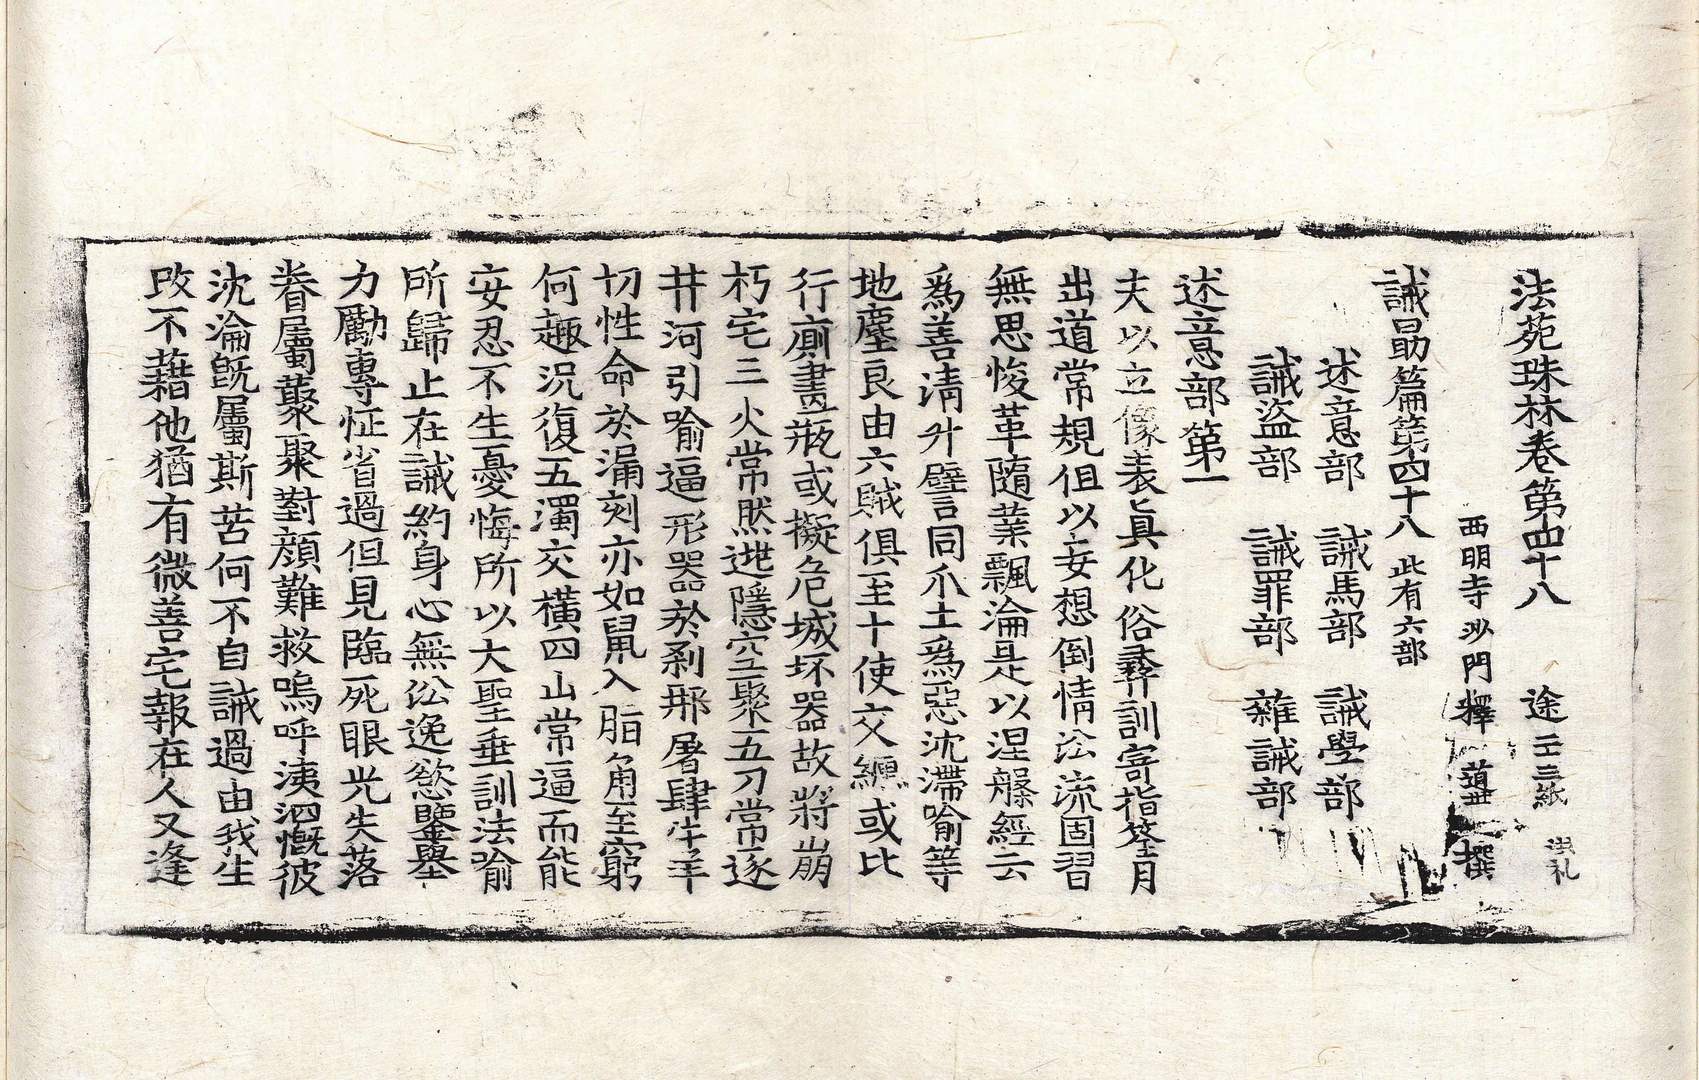 法苑珠林卷第四十八　途　二三紙　洪礼
西明寺沙門釋　道世　撰
誡勗篇第四十八　此有六部
述意部　誡馬部　誡學部
誡盜部　誡罪部　雜誡部
述意部第一
夫以立像表真化俗彝訓寄指筌月
出道常規但以妄想倒情沿流固習
無思悛革隨業飄淪是以涅槃經云
爲善清升譬同爪土爲惡沈滯喻等
地塵良由六賊俱至十使交纏或比
行廁畫瓶或擬危城坏器故將崩
朽宅三火常然逃隱空聚五刀常逐
井河引喻逼形器於剎那屠肆牛羊
切性命於漏刻亦如鼠入脂角至窮
何趣況復五濁交橫四山常逼而能
安忍不生憂悔所以大聖垂訓法喻
所歸止在誡約身心無公逸慾鑒舉
力勵專怔省過但見臨死眼光失落
眷屬叢聚對顏難救嗚呼洟泗慨彼
沈淪既屬斯苦何不自誡過由我生
改不藉他猶有微善宅報在人又逢